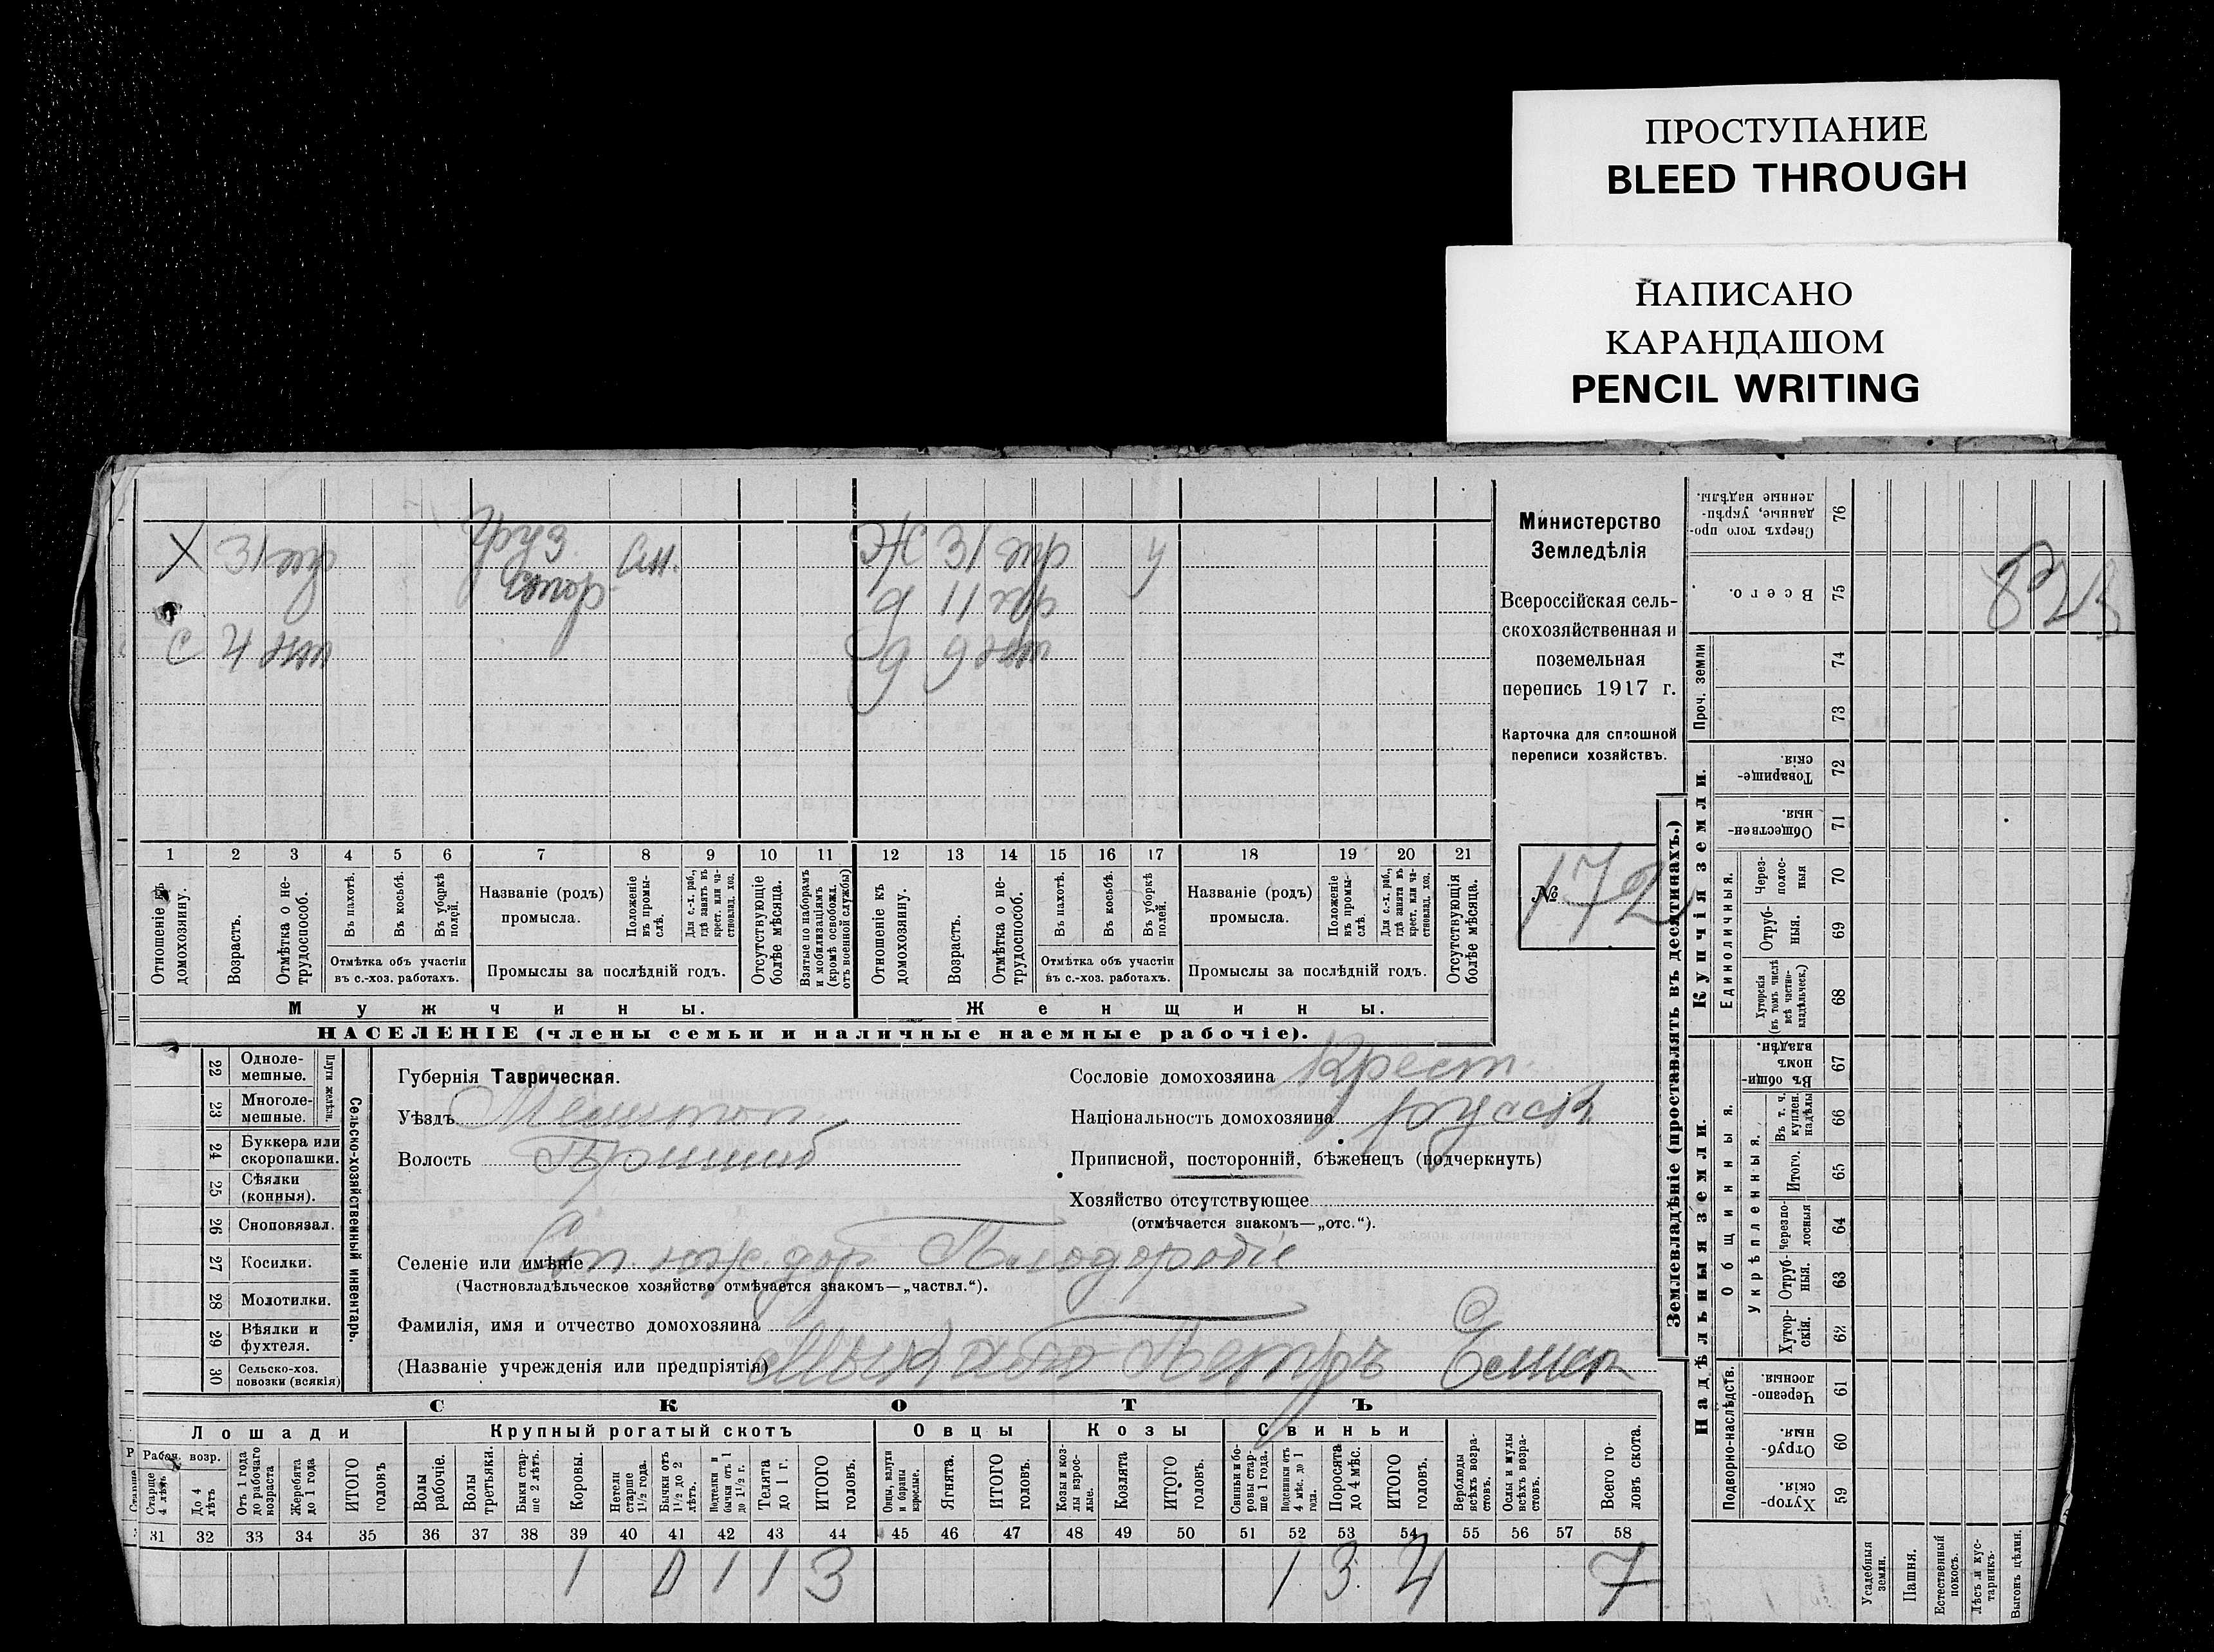 ПРОСТУПАНИЕ
BLEED THROUGH
НАПИСАНО
КАРАНДАШОМ
PENCIL WRITING
Х 31
Сл.
Ж 31 ч
11
С 4
6 9
1 2 3 4 5 6 7 8 9 10 11 12 13 14 15 16 17 18 19 20 21
Отношеніе къ домохозяину.
Возрастъ.
Отмѣтка о не-трудоспособ.
Въ пахотѣ.
Въ косьбѣ.
Въ уборкѣ полей.
Отмѣтка объ участіи
въ с.-хоз. работахъ.
Названіе (родъ)
промысла.
Положеніе въ промы-слѣ.
Для с.-х. раб., гдѣ занятъ въ крест. или ча-ствовлад. хоз.
Промыслы за послѣдній годъ.
Отсутствующіе болѣе мѣсяца.
Взятые по наборамъ и мобилизаціямъ (кромѣ освобожд. отъ военной службы)
Отношеніе къ домохозяину.
Возрастъ.
Отмѣтка о не-трудоспособ.
Въ пахотѣ.
Въ косьбѣ.
Въ уборкѣ полей.
Отмѣтка объ участіи
въ с.-хоз. работахъ.
Названіе (родъ)
промысла.
Положеніе въ промы-слѣ.
Для с.-х. раб., гдѣ занята въ крест. или ча-ствовлад. хоз.
Промыслы за послѣдній годъ.
Отсутствующія болѣе мѣсяца.
Мужчины.
Женщины.
НАСЕЛЕНІЕ (члены семьи и наличные наемные рабочіе).
Министерство
Земледѣлія
Всероссійская сель-
скохозяйственная и
поземельная
перепись 1917 г.
Карточка для сплошной
переписи хозяйствъ.
№ 172
22 Одноле-мешные.
23 Многоле-мешные.
Плуги желѣзн.
24 Буккера или скоропашки.
25 Сѣялки (конныя).
26 Сноповязал.
27 Косилки.
28 Молотилки.
29 Вѣялки и фухтеля.
30 Сельско-хоз. повозки (всякія)
Сельско-хозяйственный инвентарь.
Губернія Таврическая.
Уѣздъ Мелитоп.
Волость Пришиб
Селеніе или имѣніе Ст. юж. дор. Плодородіе
(Частновладѣльческое хозяйство отмѣчается знакомъ—„частвл.“).
Фамилія, имя и отчество домохозяина
(Названіе учрежденія или предпріятія) Петръ
Сословіе домохозяина Крест.
Національность домохозяина русск
Приписной, посторонній, бѣженецъ (подчеркнуть)
Хозяйство отсутствующее
(отмѣчается знакомъ—„отс.“).
СКОТЪ
Лошади
Крупный рогатый скотъ
Овцы
Козы
Свиньи
Рабоч. возр.
Старше 4 лѣтъ
До 4 лѣтъ
Отъ 1 года до рабочаго возраста
Жеребята до 1 года
ИТОГО головъ
Волы рабочіе.
Волы третьяки.
Быки стар-ше 2 лѣтъ.
Коровы.
Нетели старше 1½ года.
Бычки отъ 1½ до 2 лѣтъ.
Подтелки и бычки отъ 1 до 1½ г.
Телята до 1 г.
ИТОГО головъ.
Овцы, валухи и бараны взрослые.
Ягнята.
ИТОГО головъ.
Козы и коз-лы взрос-лые.
Козлята
ИТОГО головъ.
Свиньи и бо-ровы стар-ше 1 года.
Подсвинки отъ 4 мѣс. до 1 года.
Поросята до 4 мѣс.
ИТОГО головъ.
Верблюды всѣхъ возра-стовъ.
Ослы и мулы всѣхъ возра-стовъ.
Всего го-ловъ скота.
31 32 33 34 35 36 37 38 39 40 41 42 43 44 45 46 47 48 49 50 51 52 53 54 55 56 57 58
1 1 1 3 1 3 4 7
Землевладѣніе (проставлять въ десятинахъ.)
Надѣльныя земли.
Купчія земли.
Проч. земли
Подворно-наслѣдств.
Общинныя.
Укрѣпленныя.
Единоличныя.
Сверхъ того про-данные, укрѣп-ленные надѣлы. 76
Всего. 75
74
73
Товарище-скія. 72
Обществен-ныя 71
Через-полос-ныя 70
Отруб-ныя. 69
Хуторскія (въ томъ числѣ всѣ частно-владѣльческ.) 68
Въ общин-номъ владѣн. 67
Въ т. ч. куплен. надѣлы 66
Итого. 65
Черезпо-лосныя 64
Отруб-ныя. 63
Хутор-скія. 62
Черезпо-лосныя 61
Отруб-ныя. 60
Хутор-скія. 59
Усадебныя земли.
Пашня.
Естественный покосъ.
Лѣсъ и кус-тарникъ.
Выгонъ цѣлин.